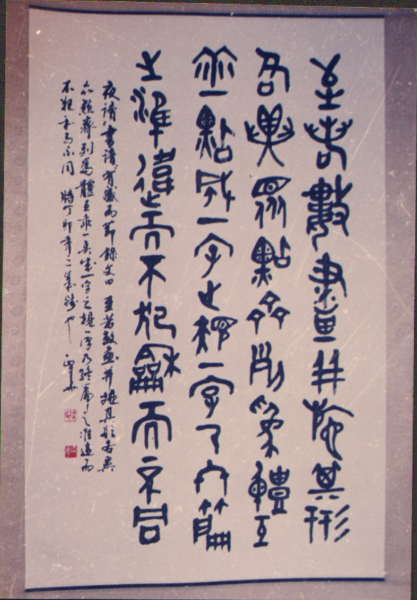 至若數畫并施其形
各異眾點齊列為體互
乖一點成一字之規一字乃終篇
之準違而不犯龢而不同
夜讀書譜有感而節錄文曰至若數畫并施其形各異
眾點齊列為體互乖一點成一字之規一字乃終篇之準違而
不犯和而不同 時丁卯年